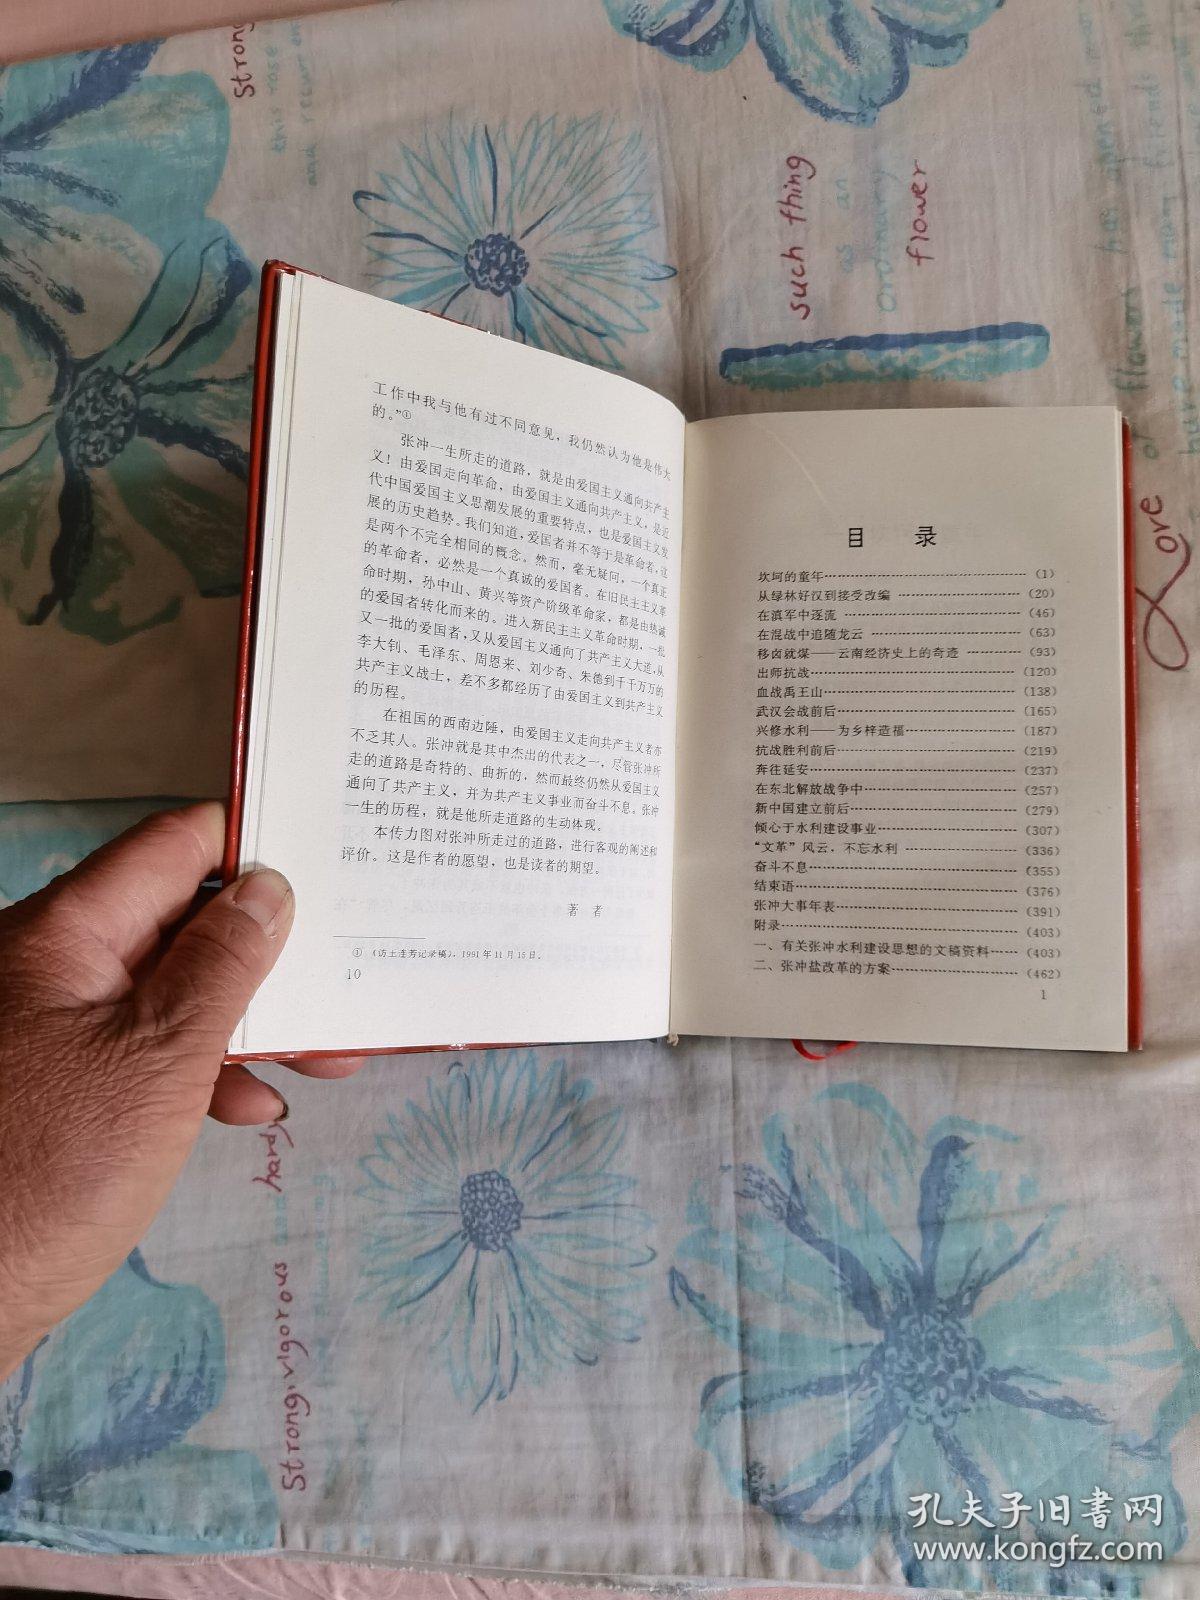 工作中我与他有过不同意见，我仍然认为他是伟大
的。”①
张冲一生所走的道路，就是由爱国主义通向共产主
义！由爱国走向革命，由爱国主义通向共产主义，是近
代中国爱国主义思潮发展的重要特点，也是爱国主义发
展的历史趋势。我们知道，爱国者并不等于是革命者，这
是两个不完全相同的概念。然而，毫无疑问，一个真正
的革命者，必然是一个真诚的爱国者。在旧民主主义革
命时期，孙中山、黄兴等资产阶级革命家，都是由热诚
的爱国者转化而来的。进入新民主主义革命时期，一批
又一批的爱国者，又从爱国主义通向了共产主义大道，从
李大钊、毛泽东、周恩来、刘少奇、朱德到千千万万的
共产主义战士，差不多都经历了由爱国主义到共产主义
的历程。
在祖国的西南边陲，由爱国主义走向共产主义者亦
不乏其人。张冲就是其中杰出的代表之一，尽管张冲所
走的道路是奇特的、曲折的，然而最终仍然从爱国主义
通向了共产主义，并为共产主义事业而奋斗不息。张冲
一生的历程，就是他所走道路的生动体现。
本传力图对张冲所走过的道路，进行客观的阐述和
评价。这是作者的愿望，也是读者的期望。
著 者
① 《访王连芳记录稿》，1991年11月15日。
10
目 录
坎坷的童年……(1)
从绿林好汉到接受改编……(20)
在滇军中逐流……(46)
在混战中追随龙云……(63)
移卤就煤——云南经济史上的奇迹……(93)
出师抗战……(120)
血战禹王山……(138)
武汉会战前后……(165)
兴修水利——为乡梓造福……(187)
抗战胜利前后……(219)
奔往延安……(237)
在东北解放战争中……(257)
新中国建立前后……(279)
倾心于水利建设事业……(307)
“文革”风云，不忘水利……(336)
奋斗不息……(355)
结束语……(376)
张冲大事年表……(391)
附录……(403)
一、有关张冲水利建设思想的文稿资料……(403)
二、张冲盐改革的方案……(462)
1
Strong
this rose
such thing
as an
ordinary
flower
Love
hardy
Strong,vigorous
孔夫子旧书网
www.kongfz.com